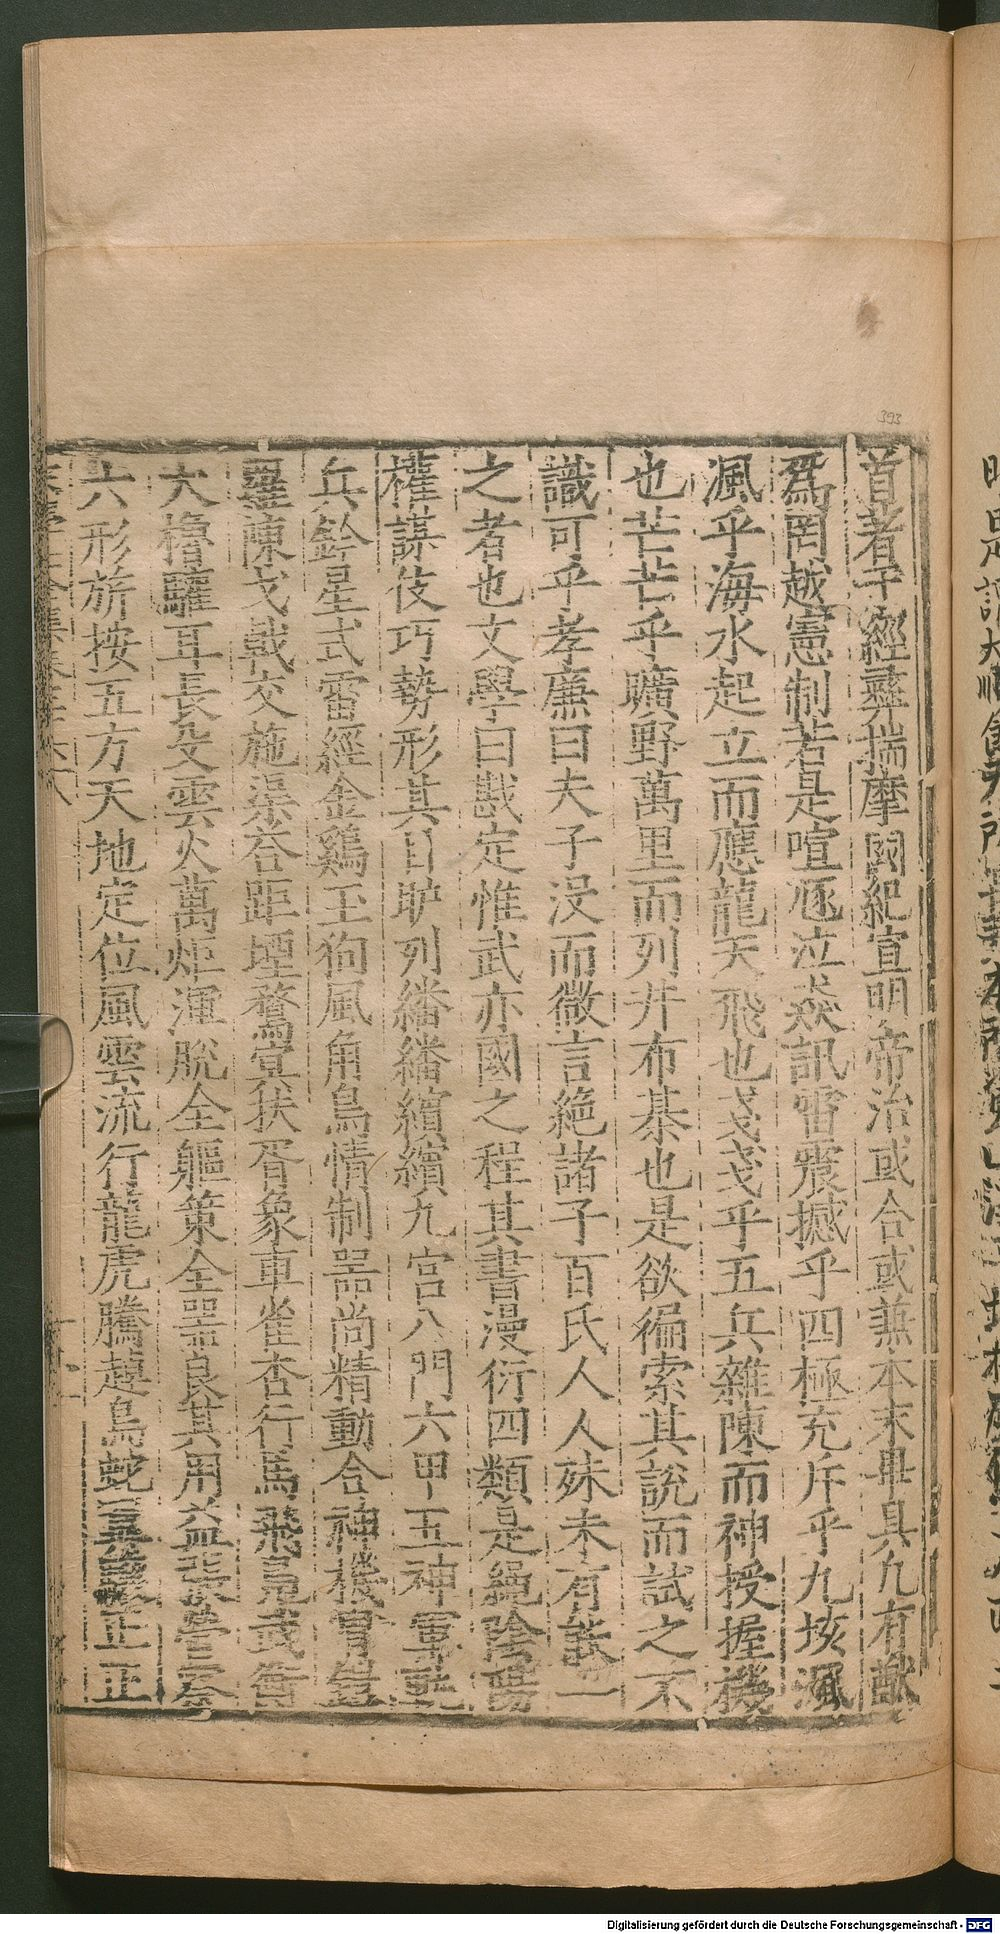 首者子經彝揣摩閎紀宣明帝治或合或兼本末畢具九有猷
爲罔越憲制若是喧豗泣焱訊雷震撼乎四極充斥乎九垓渢
渢乎海水起立而應龍天飛也戔戔乎五兵雜陳而神授握機
也芒芒乎曠野萬里而列井布棊也是欲徧索其說而試之不
識可乎孝廉曰夫子没而微言絶諸子百氏人人殊未有能一
之者也文學曰戡定惟武亦國之程其書漫衍四類是繩陰陽
權謀伎巧勢形其目眆列繙繙繽繽九宫八門六甲五神軍乾
兵鈐星式雷經金鷄玉狗風角鳥情制器尚精動合神機冑鎧
羅陳戈戟交施渠荅距堙鶩寘扶胥象車雀杏行馬飛鳧武衝
大櫓驩耳長殳雲火萬炬渾脫全軀策全器良其用益張營寥
六形旂按五方天地定位風雲流行龍虎騰趠鳥蛇 正正
393
Digitalisierung gefördert durch die Deutsche Forschungsgemeinschaft - DFG